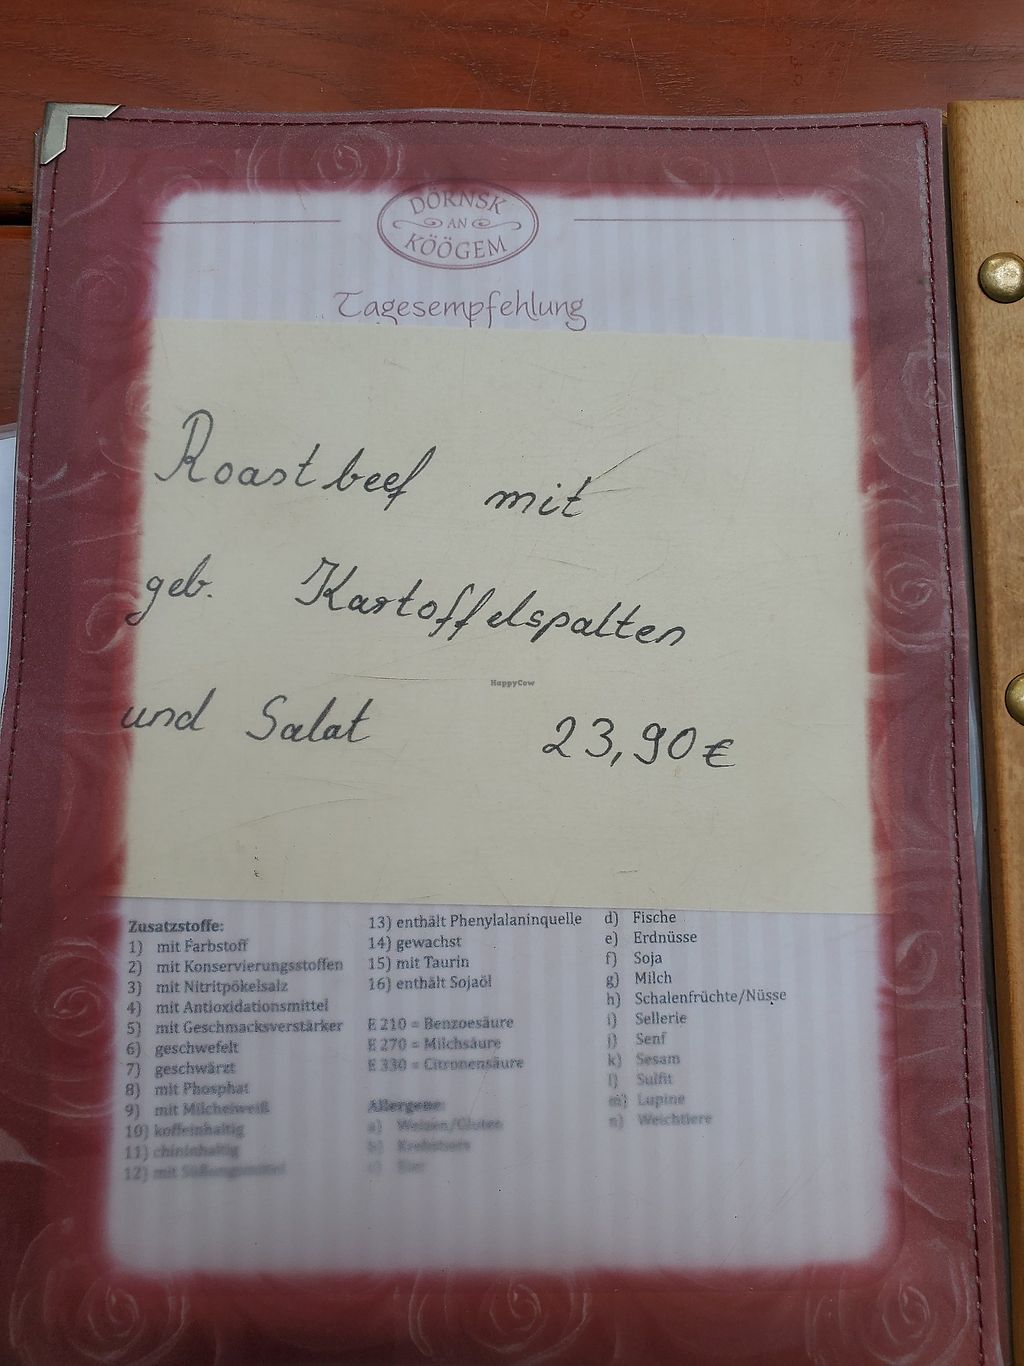 DÖRNSK
AN
KÖÖGEM
Tagesempfehlung
Roastbeef mit
geb. Kartoffelspalten
und Salat 23,90 €
HappyCow
Zusatzstoffe:
1) mit Farbstoff
2) mit Konservierungsstoffen
3) mit Nitritpökelsalz
4) mit Antioxidationsmittel
5) mit Geschmacksverstärker
6) geschwefelt
7) geschwärzt
8) mit Phosphat
9) mit Milcheiweiß
10) koffeinhaltig
11) chininhaltig
12) mit Süßungsmittel
13) enthält Phenylalaninquelle
14) gewachst
15) mit Taurin
16) enthält Sojaöl
E 210 = Benzoesäure
E 270 = Milchsäure
E 330 = Citronensäure
Allergene:
a) Weizen/Gluten
b) Krebstiere
c) Eier
d) Fische
e) Erdnüsse
f) Soja
g) Milch
h) Schalenfrüchte/Nüsse
i) Sellerie
j) Senf
k) Sesam
l) Sulfit
m) Lupine
n) Weichtiere